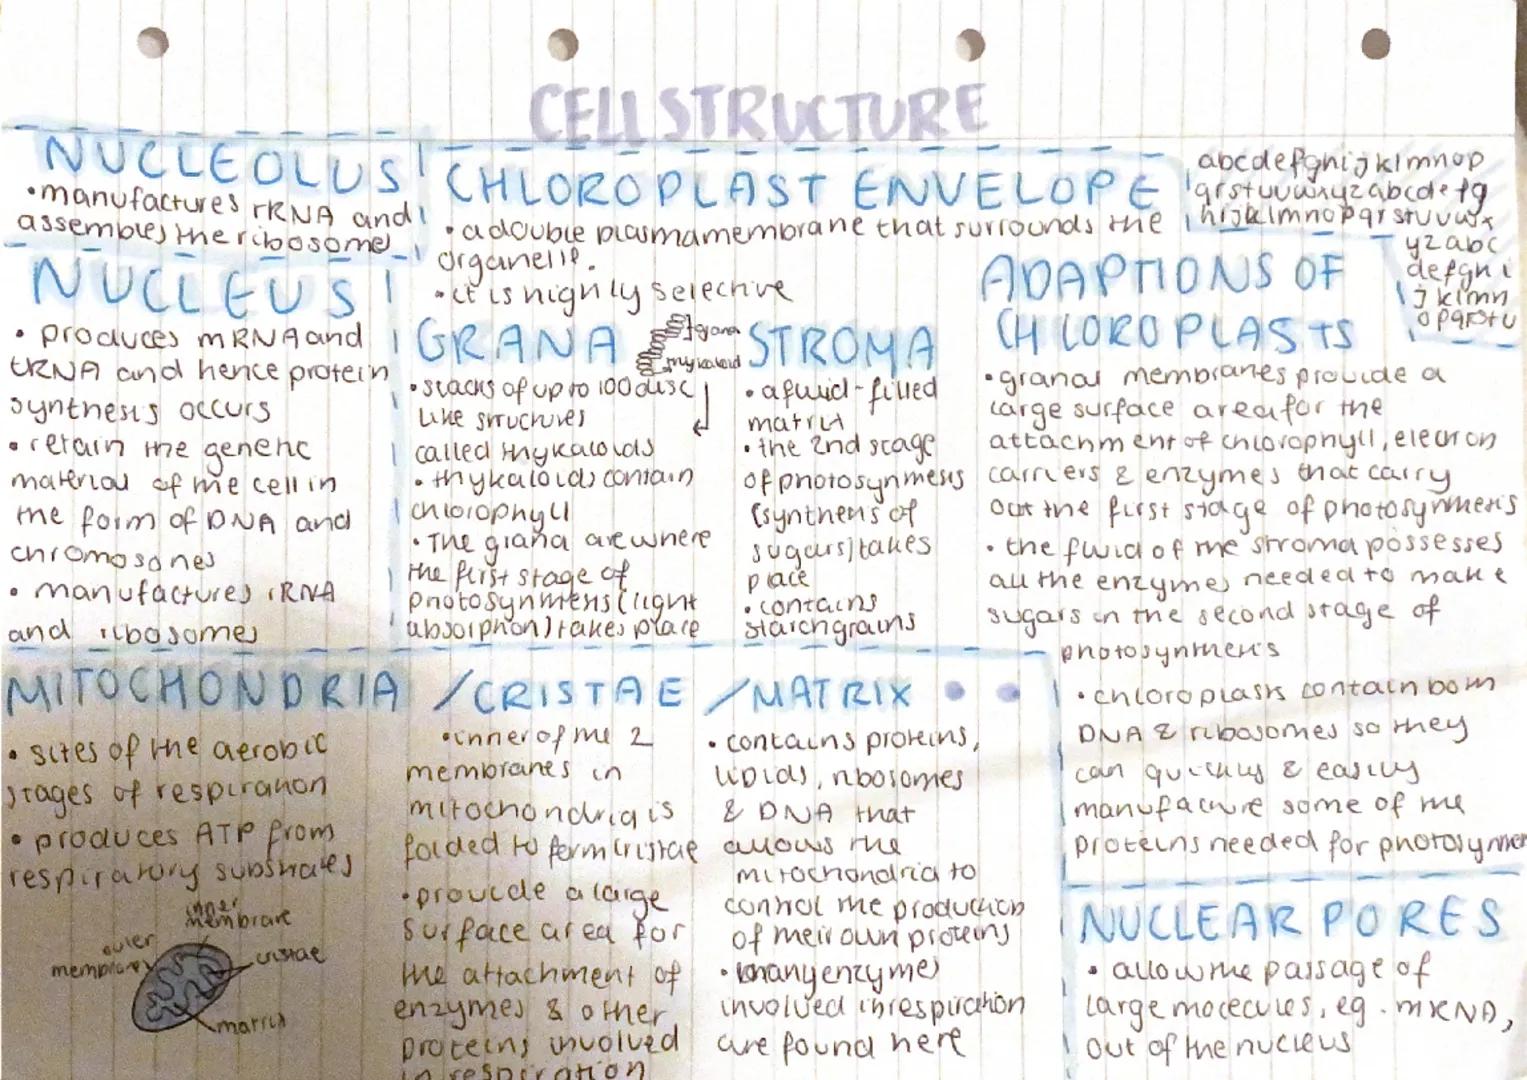 CELL STRUCTURE
NUCLEOLUS
•manufactures rRNA and
assembles the ribosomes
CHLOROPLAST ENVELOPE
•a double plasmamembrane that surrounds the
organelle.
•it is highly selective
abcdefghijklmnop
qrstuvwxyzabcdefg
hijklmnopqrstuvwx
yzabc
defghi
jklmn
opqrstu
NUCLEUS
• produces mRNA and
tRNA and hence protein
synthesis occurs
• retain the genetic
material of the cell in
the form of DNA and
chromosones
• manufactures rRNA
and ribosomes
GRANA
grana
thykaloid
•stacks of up to 100 disc
like structures
called thykaloids
• thykaloids contain
chlorophyll
•The grana are where
the first stage of
photosynthesis (light
absorption) takes place
STROMA
• a fluid-filled
matrix
• the 2nd stage
of photosynthesis
(synthesis of
sugars) takes
place
• contains
starch grains
ADAPTIONS OF
CHLOROPLASTS
•granal membranes provide a
large surface area for the
attachment of chlorophyll, electron
carriers & enzymes that carry
out the first stage of photosynthesis
• the fluid of the stroma possesses
all the enzymes needed to make
sugars in the second stage of
photosynthesis
• chloroplasts contain both
DNA & ribosomes so they
can quickly & easily
manufacture some of the
proteins needed for photosynthe
MITOCHONDRIA /CRISTAE /MATRIX
• sites of the aerobic
stages of respiration
• produces ATP from
respiratory substrates
inner
membrane
outer
membrane
cristae
matrix
•inner of the 2
membranes in
mitochondria is
folded to form cristae
•provide a large
surface area for
the attachment of
enzymes & other
proteins involved
in respiration
• contains proteins,
lipids, ribosomes
& DNA that
allows the
mitochondria to
control the production
of their own proteins
• many enzymes
involved in respiration
are found here
NUCLEAR PORES
• allow the passage of
large molecules, eg. mRNA,
out of the nucleus